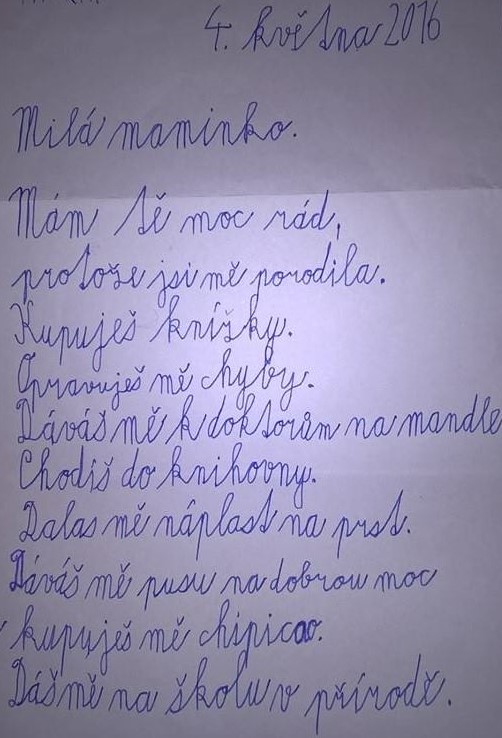 4. května 2016
Milá maminko.
Mám tě moc rád,
protože jsi mě porodila.
Kupuješ knížky.
Opravuješ mě chyby.
Dáváš mě k doktorům na mandle
Chodíš do knihovny.
Dalas mě náplast na prst.
Dáváš mě pusu na dobrou moc
kupuješ mě chipicao.
Dáš mě na školu v přírodě.